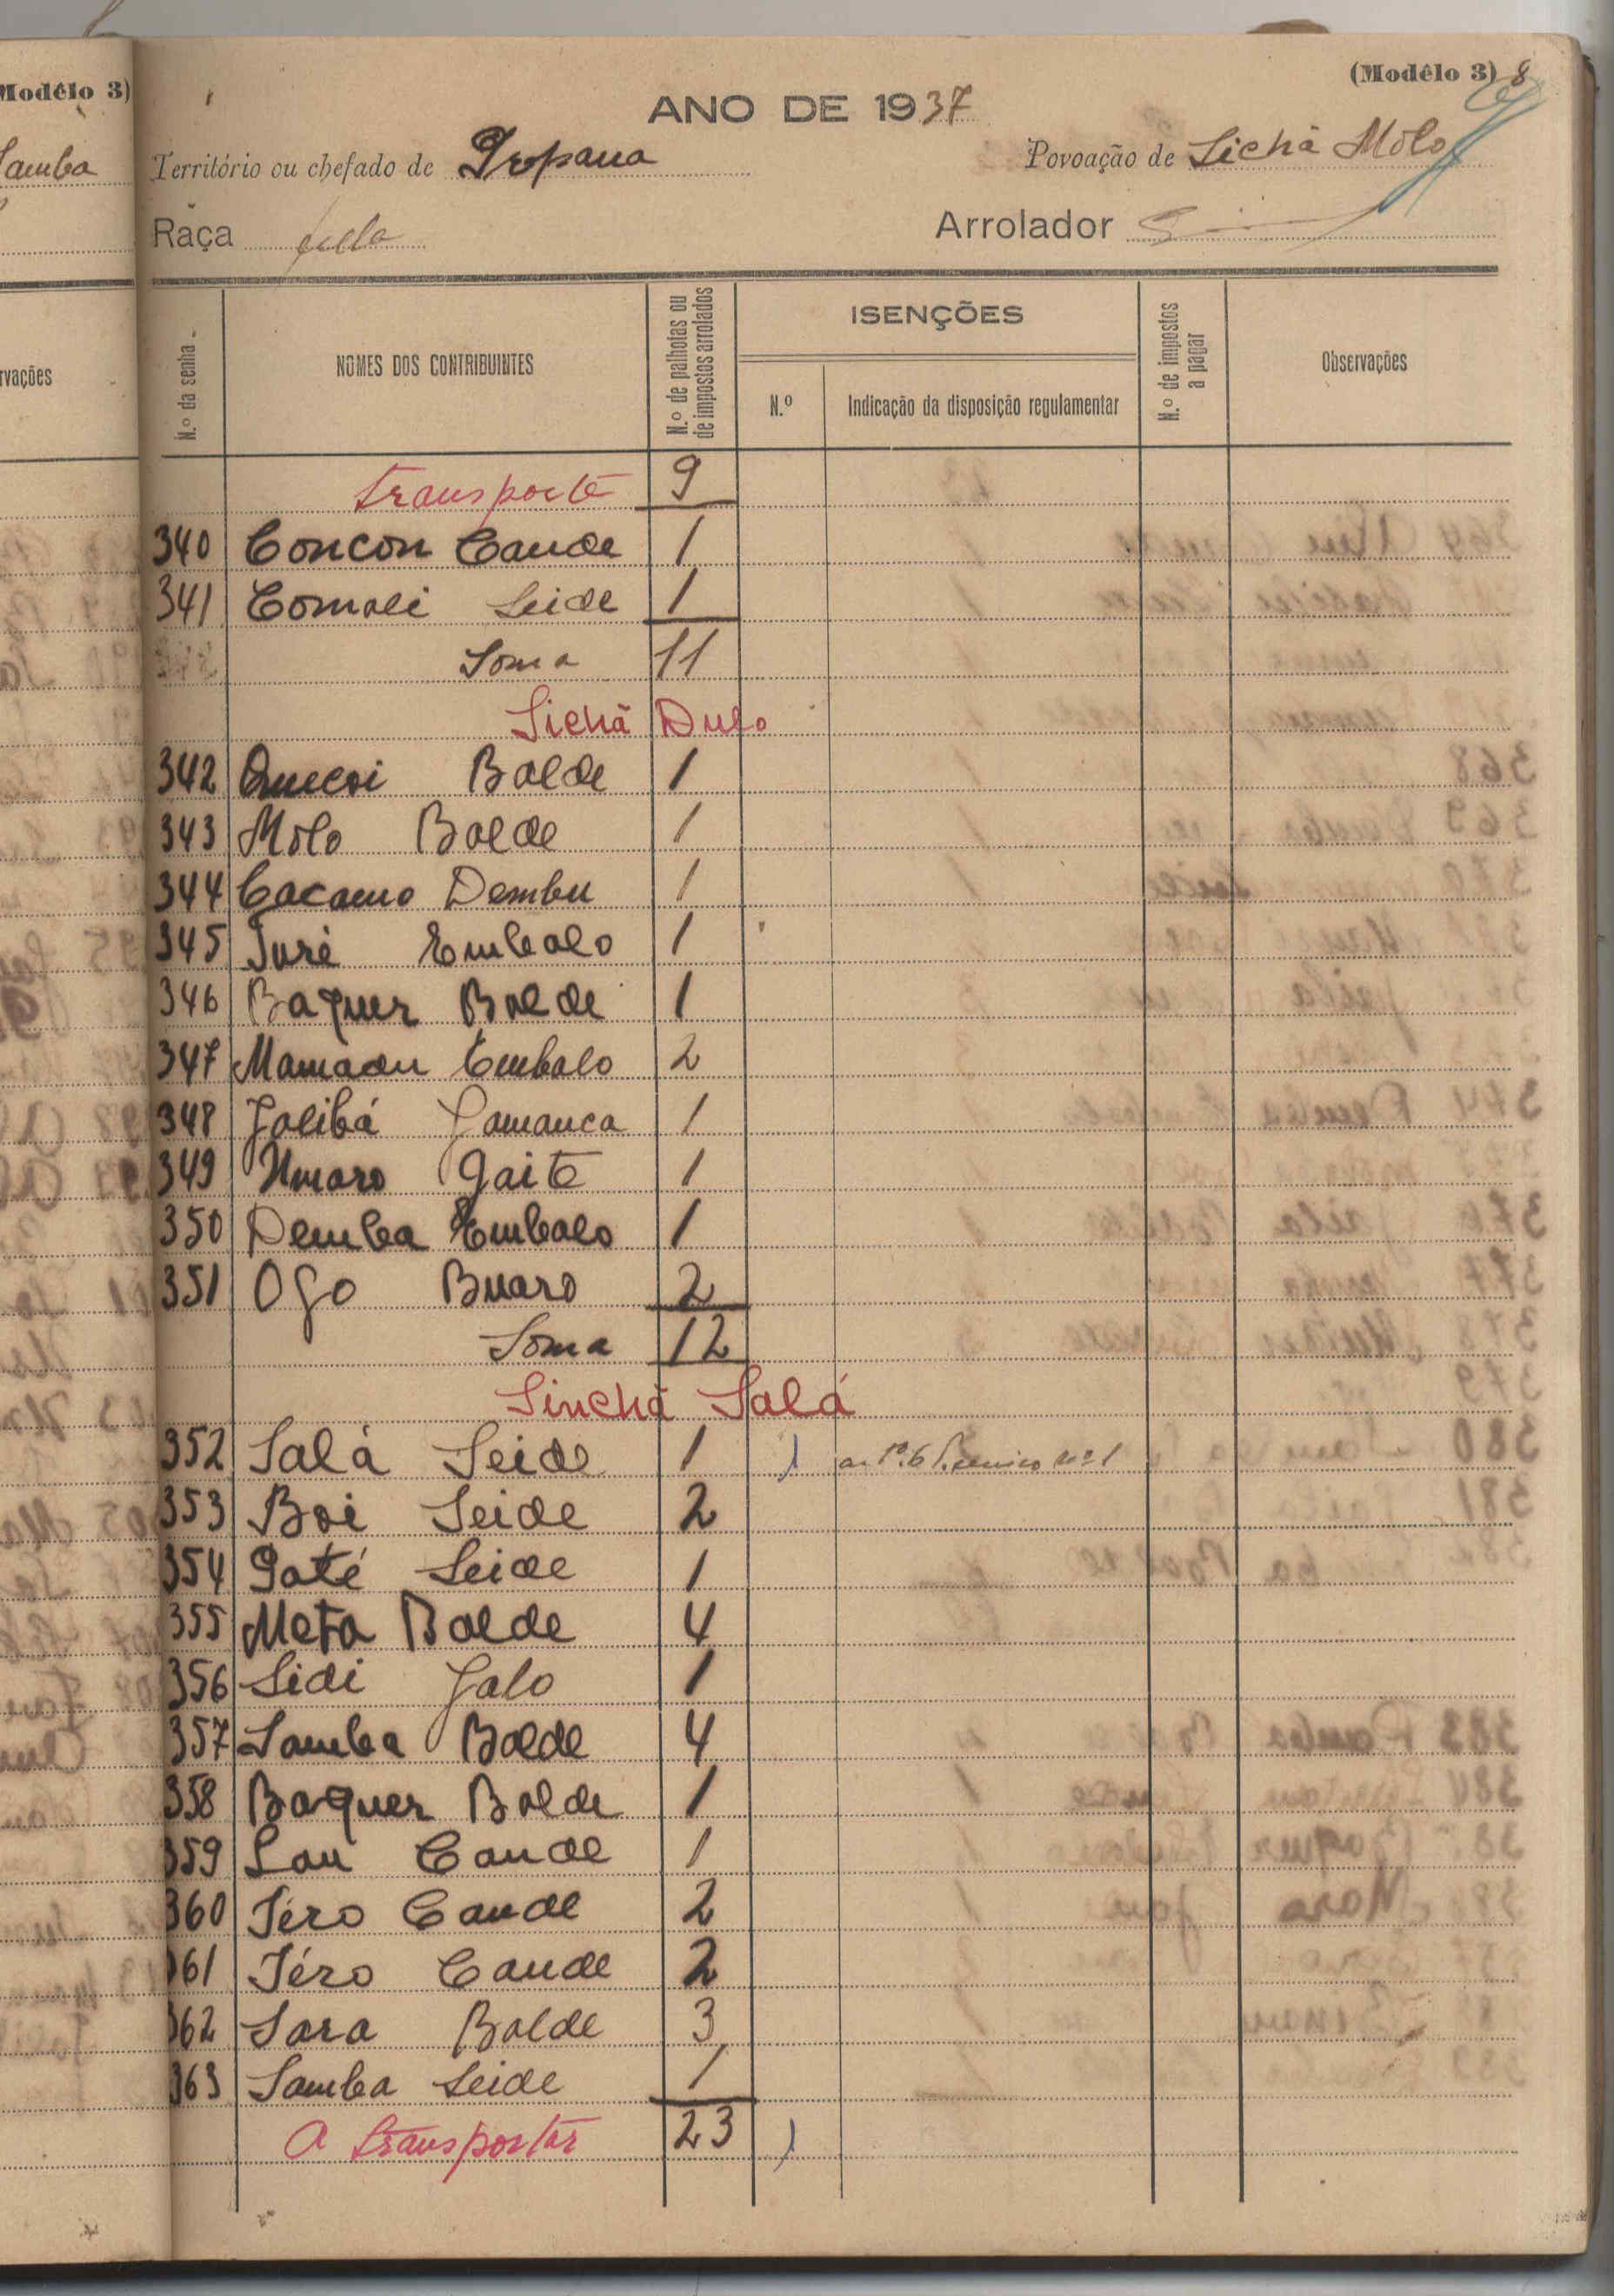 (Modêlo 3) 8
ANO DE 1937
Território ou chefado de Propana
Povoação de Sichã Mólo
Raça fula
Arrolador
N.º da senha
NOMES DOS CONTRIBUINTES
N.º de palhotas ou de impostos arrolados
ISENÇÕES
N.º
Indicação da disposição regulamentar
N.º de impostos a pagar
Observações
transporte 9
340 Concon Cande 1
341 Comali Seide 1
Soma 11
Sichã Dulo
342 Balde 1
343 Mólo Balde 1
344 Cacamo Dembu 1
345 Juré Embalo 1
346 Baquer Balde 1
347 Mamadu Embalo 2
348 Jalibá Jamanca 1
349 Umaro Gaité 1
350 Demba Embalo 1
351 Ogo Buaro 2
Soma 12
Sinchã Salá
352 Salá Seide 1 1 nº 1
353 Boi Seide 2
354 Paté Seide 1
355 Meta Balde 4
356 Sidi Jalo 1
357 Samba Balde 4
358 Baquer Balde 1
359 Lau Cande 1
360 Téro Cande 2
361 Téro Cande 2
362 Sara Balde 3
363 Samba Seide 1
A transportar 23 1